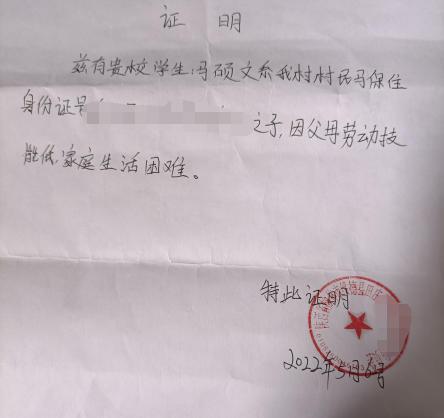 证 明
兹有贵校学生:马硕文系我村村民马保住
身份证号
之子,因父母劳动技
能低,家庭生活困难。
特此证明
2022年5月6号